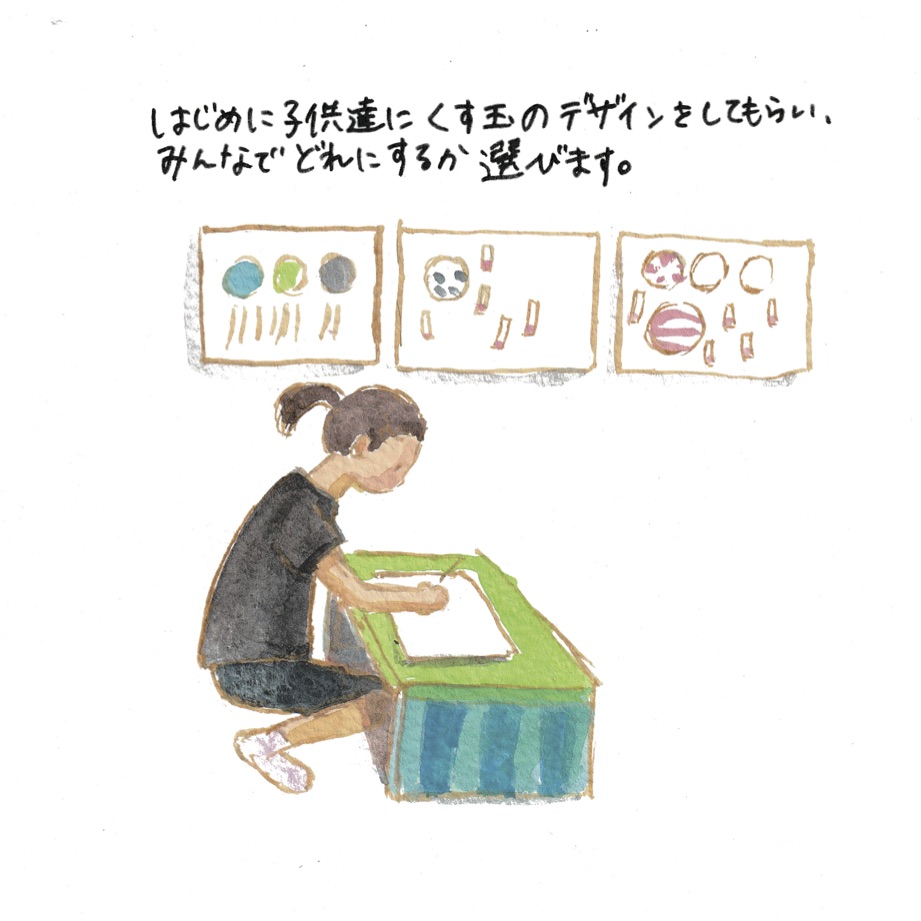 はじめに子供達にくす玉のデザインをしてもらい、
みんなでどれにするか選びます。